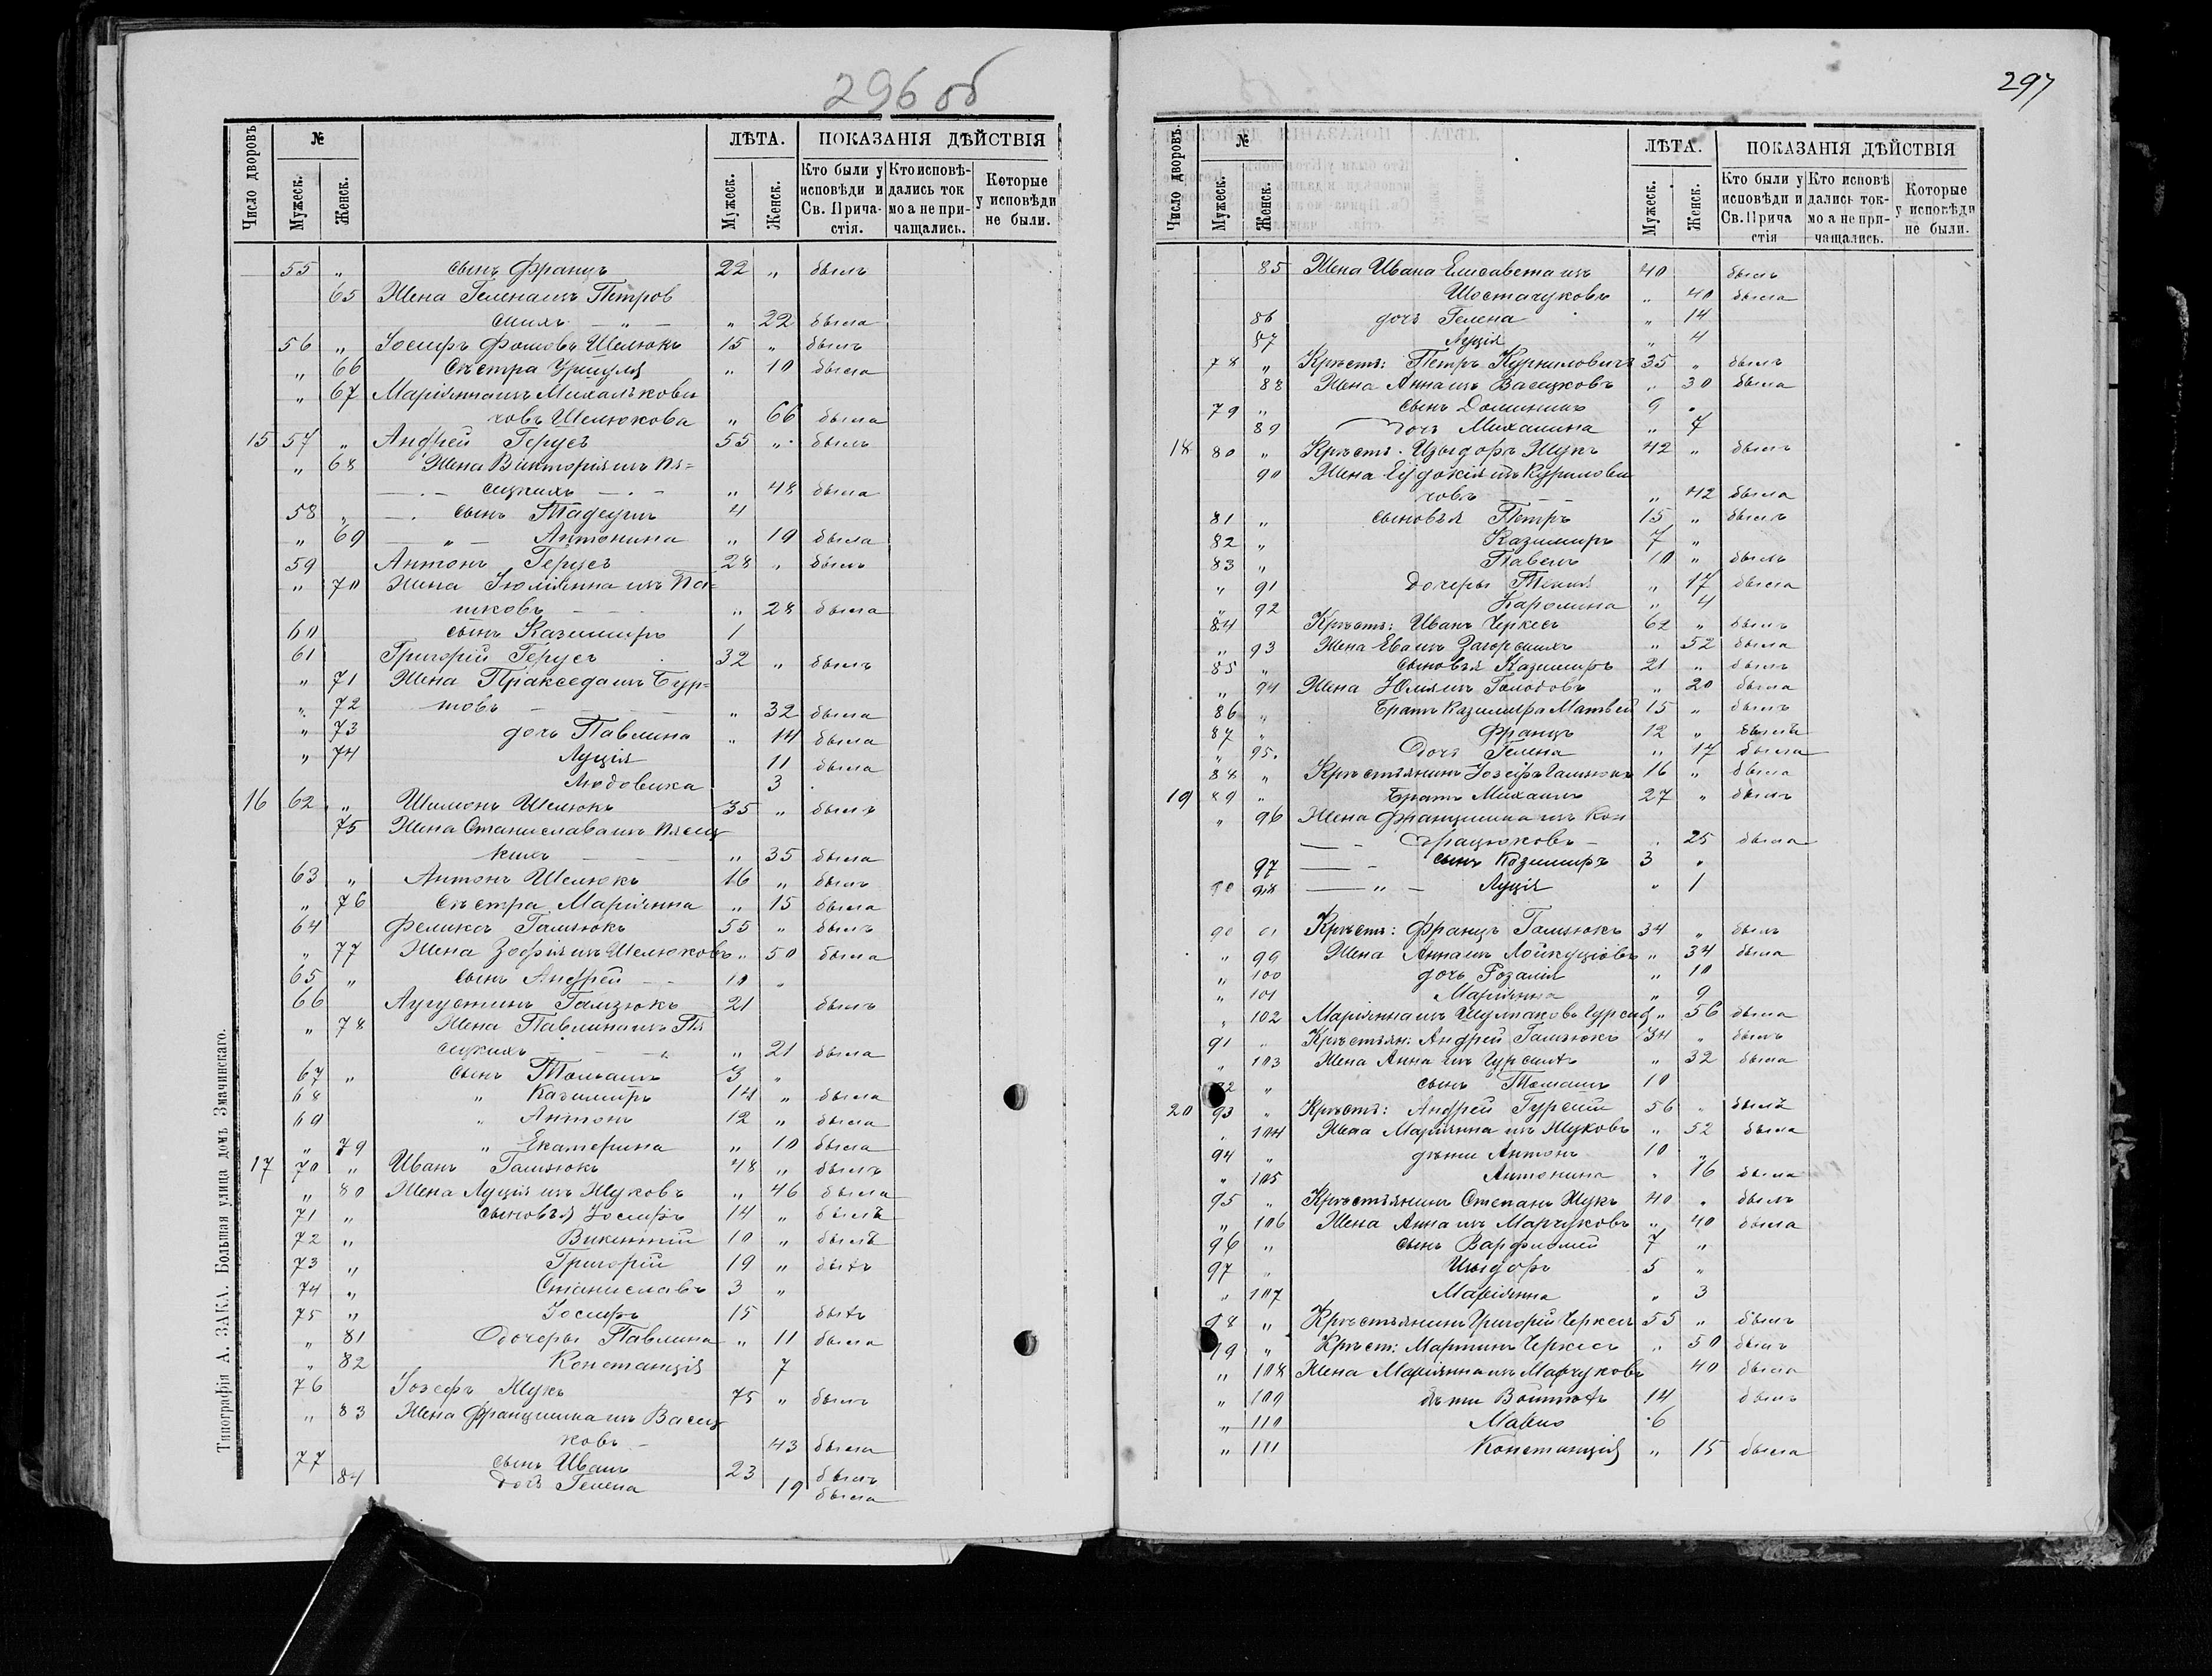 296 об
Число дворовъ № ЛѢТА. ПОКАЗАНІЯ ДѢЙСТВІЯ
Мужеск. Женск. Мужеск. Женск. Кто были у исповѣди и Св. Прича- стія. Кто исповѣ- дались ток мо а не при- чащались. Которые у исповѣди не были.
55 „ сынъ Францъ 22 „ былъ
65 Жена Гелена изъ Петров
скихъ „ 22 была
56 „ Іосифъ Фомовъ Шелюкъ 15 „ былъ
„ 66 Сѣстра Уршуля „ 10 была
„ 67 Маріянна изъ Михалькови
ховъ Шелюкова „ 66 была
15 57 „ Андрей Герусъ 55 „ былъ
„ 68 Жена Викторія изъ Пя=
сецкихъ „ 48 была
58 „ сынъ Тадеушъ 4
„ 69 „ Антонина „ 19 была
59 Антонъ Герусъ 28 „ былъ
„ 70 Жена Юліянна изъ Па=
шковъ „ 28 была
60 сынъ Казимиръ 1
61 Григорій Герусъ 32 „ былъ
„ 71 Жена Пракседа изъ Бур=
„ 72 товъ „ 32 была
„ 73 дочь Павлина „ 14 была
„ 74 Луція 11 была
Людовика 3
16 62 „ Шимонъ Шелюкъ 35 „ былъ
75 Жена Станислава изъ Пясец
кихъ „ 35 была
63 „ Антонъ Шелюкъ 16 „ былъ
„ 76 Сѣстра Маріянна „ 15 была
64 Феликсъ Гамзюкъ 55 „ былъ
„ 77 Жена Зофія изъ Шелюковъ „ 50 была
65 „ сынъ Андрей 10 „
66 Аугустинъ Гамзюкъ 21 былъ
„ 78 Жена Павлина изъ Пя
сецкихъ „ 21 была
67 „ сынъ Томашъ 3 „
68 „ Казимиръ 14 „ была
69 „ Антонъ 12 „ была
„ 79 „ Екатерина „ 10 была
17 70 „ Иванъ Гамзюкъ 48 „ былъ
„ 80 Жена Луція изъ Жуковъ „ 46 была
71 „ сыновья Іосифъ 14 „ былъ
72 „ Викентій 10 „ былъ
73 „ Григорій 19 „ былъ
74 „ Станиславъ 3 „
75 „ Іосифъ 15 былъ
„ 81 Дочеры Павлина „ 11 была
„ 82 Констанція 7
76 Іозефъ Жукъ 75 „ былъ
„ 83 Жена Францишка изъ Васец
ковъ 43 была
77 сынъ Иванъ 23 былъ
84 дочь Гелена 19 была
Типографія А. ЗАКА. Большая улица домъ Значинскаго.
297
Число дворовъ. № ЛѢТА. ПОКАЗАНІЯ ДѢЙСТВІЯ
Мужеск. Женск. Мужеск. Женск. Кто были у исповѣди и Св. Прича стія Кто исповѣ дались ток- мо а не при- чащались. Которые у исповѣди не были.
85 Жена Ивана Елисавета изъ 40 былъ
Шостачуковъ „ 40 была
86 дочь Гелена „ 14
87 Луція „ 4
78 „ Крѣст: Петръ Куриловичъ 35 „ былъ
88 Жена Анна изъ Васецковъ „ 30 была
79 „ сынъ Доминикъ 9 „
89 дочь Михалина „ 7
18 80 „ Крѣст. Изыдоръ Жукъ 42 „ былъ
90 Жена Еудокія изъ Курилови
човъ „ 42 была
81 „ сыновья Петръ 15 „ былъ
82 „ Казимиръ 7 „
83 „ Павелъ 10 „ былъ
„ 91 дочеры Текля „ 17 была
„ 92 Каролина „ 4
84 Крѣст: Иванъ Черкесъ 62 „ былъ
„ 93 Жена Ева изъ Загорскихъ „ 52 была
85 „ сыновья Казимиръ 21 „ былъ
„ 94 Жена Юлія изъ Голодовъ „ 20 была
86 „ Братъ Казимира Матвей 15 „ былъ
87 „ Францъ 12 „ былъ
„ 95. Дочь Гелена „ 17 была
88 „ Крѣстьянинъ Іозефъ Гамзюкъ 16 „ была
19 89 „ Братъ Михаилъ 27 „ былъ
„ 96 Жена Францишка изъ Кон
драцюковъ „ 25 была
97 сынъ Казимиръ 3 „
90 98 „ Луція „ 1
90 Крѣст: Францъ Гамзюкъ 34 „ былъ
„ 99 Жена Анна изъ Лойкуціовъ „ 34 была
„ 100 дочь Розалія „ 10
„ 101 Маріянна „ 9
„ 102 Маріянна изъ Шулжаковъ „ 56 была
91 „ Крѣстьян: Андрей Гамзюкъ 34 „ былъ
„ 103 Жена Анна изъ Гурскихъ „ 32 была
92 „ сынъ Томашъ 10
20 93 „ Крѣст: Андрей Гурскій 56 „ былъ
„ 104 Жена Маріянна изъ Жуковъ „ 52 была
94 „ дѣти Антонъ 10 „
„ 105 Антонина „ 16 была
95 „ Крѣстьянинъ Степанъ Жукъ 40 „ былъ
„ 106 Жена Анна изъ Марчуковъ „ 40 была
96 „ сынъ Варфоломей 7 „
97 „ Изыдоръ 5 „
„ 107 Маріянна „ 3
98 „ Крѣстьянинъ Григорій Черкесъ 55 „ былъ
99 „ Крѣст: Мартинъ Черкесъ „ 50 былъ
„ 108 Жена Маріянна изъ Марчуковъ 40 была
„ 109 дѣти Войтѣхъ 14 былъ
„ 110 6
„ 111 Констанція „ 15 была